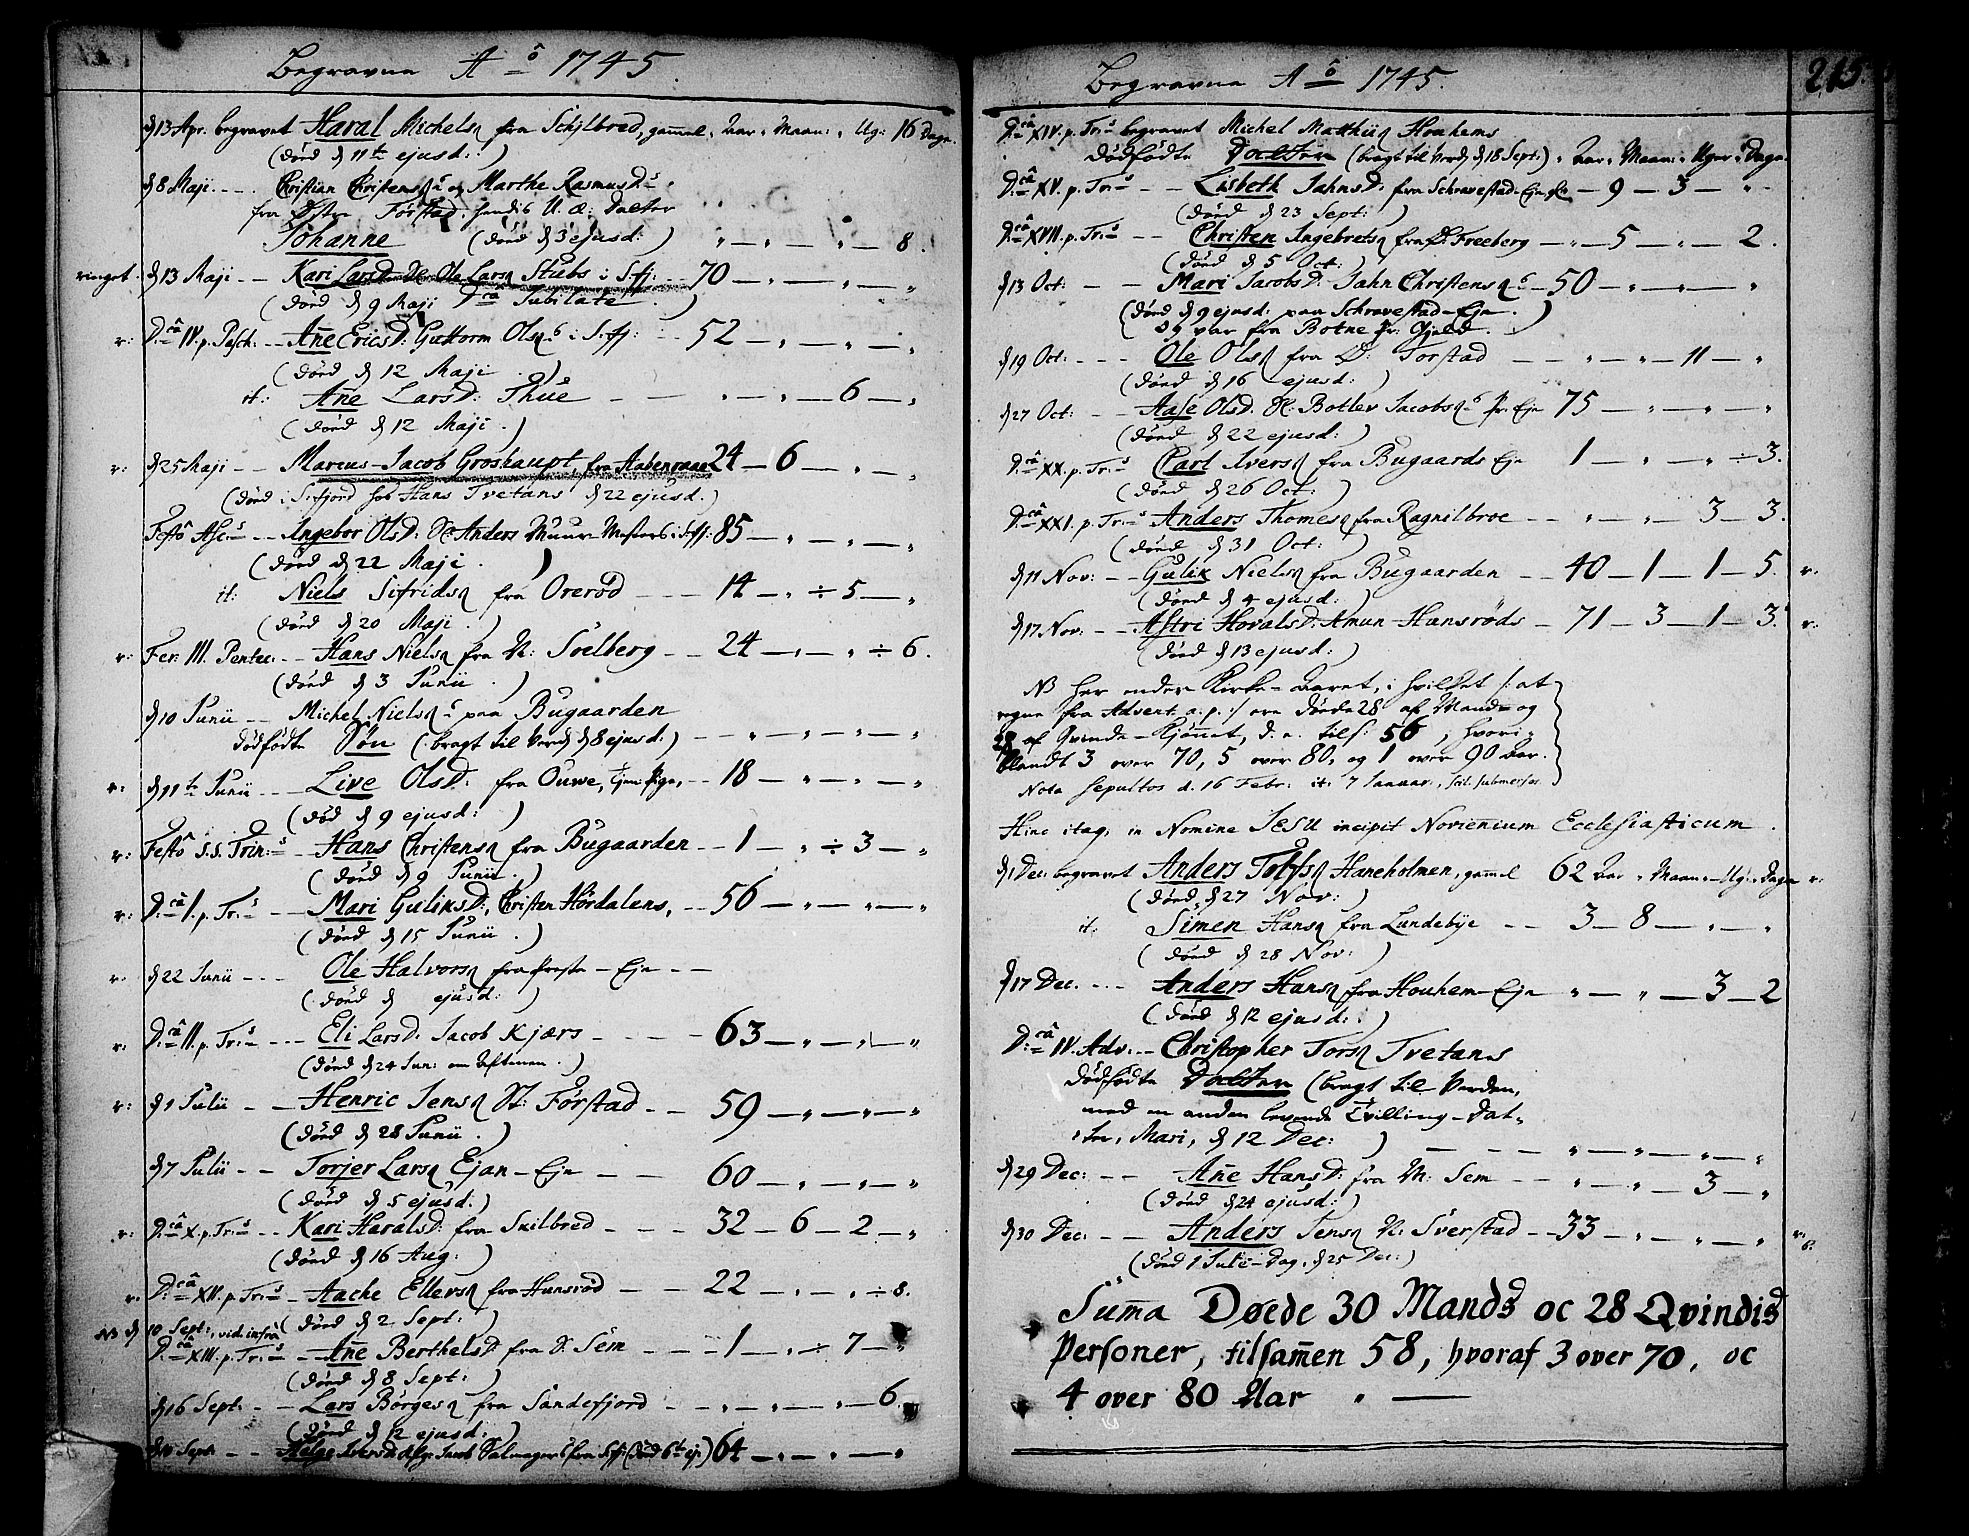 Begravne Aô 1745.
d 13 Apr. begravet Haral Michels. fra Schjlbred, gammel „ Aar „ Maan: „ Ug: 16 Dage.
(død d 11te ejusd:)
d 8 Maji - - Christian Christens. og Marthe RasmusD:
fra Østre Førstad, hendis U. Æ: Datter
Johanne (død d 3 ejusd:) „ — „ — „ — 8.
ringet. d 13 Maji - - Kari LarsD. Ole Lars. Stubs i S.fj: - - 70 — „ — „ — „
(død d 9 Maji D.câ Jubilate.)
r: D.câ IV. p. Pasch: - - Añe EricsD: Guttorm Ols. i S.fj: - - 52 — „ — „ — „
(død d 12 Maji.)
it: Añe LarsD: Thue - - „ — „ — 6 — „
(død d 12 Maji.)
r: d 25 Maji - - Marcus-Jacob Groshaupt, fra Aabenraae 24 — 6 — „ — „
(død i S.fjord hos Hans Tvetans d 22 ejusd.)
Festo Asc: - - Ingebor OlsD: Anders Muur-Mesters i S.fj: 85 — „ — „ — „
(død d 22 Maji.)
it: Niels Sifrids. fra Orerød - - - 14 — „ ÷ 5 — „
(død d 20 Maji.)
r: Fer: III. Pentec: - - Hans Niels. fra N: Solberg - - 24 — „ — „ ÷ 6.
(død d 3 Junii.)
d 10 Junii - - Michel Niels. paa Bugaarden
dødfødte Søn (bragt til Verd. d 8 ejusd:) — „ — „ — „ — „
r: d 11te Junii - - Live OlsD: fra Ouwe, tjen: Pige, - - 18 — „ — „ — „
(død d 9 ejusd:)
r: Festo S.S. Trin: - - Hans Christens. fra Bugaarden - - 1 — „ ÷ 3 — „
(død d 9 Junii.)
r: D.câ I. p. Tr: - - Mari GuliksD:, Christen Hørdalens, - - 56 — „ — „ — „
(død d 15 Junii.)
r: d 22 Junii - - Ole Halvors. fra Preste-Eje - -
(død d ejusd:)
r: D.câ II. p. Tr: - - Eli LarsD. Jacob Kjærs - - - 63 — „ — „ — „
(død d 24 Jun: om Aftenen.)
r: d 1 Julii - - Henric Jens. V: Førstad - - 59 — „ — „ — „
(død d 28 Junii.)
d 7 Julii - - Torjer Lars. Ejan-Eje - - 60 — „ — „ — „
(død d 5 ejusd.)
r: D.câ X. p. Tr: - - Kari HaralsD: fra Skilbred - - - 32 — 6 — 2 — „
(død d 16 Aug:)
r: D.câ XII. p. Tr: - Aache Ellers. fra Hunsrød - - 22 — „ — „ ÷ 8.
NB d 10 Sept:, vid. infra (død d 2 Sept:)
D.câ XIII. p. Tr: - - Añe BerthelsD. fra S. Sem - - - 1 — „ ÷ 7 — „
(død d 8 Sept:)
d 16 Sept: - - Lars Børges. fra Sandefjord - - „ — „ — „ — 6.
(død d 12 ejusd:)
d 10 Sept: - - Helge Jacob fra S.fj: (død 6te ej:) 64 — „ — „ — „
Begravne Aô 1745.
215.
D.câ XIV. p. Tr: begravet Michel Matthis. Houhems
dødfødte Datter (bragt til Verd. d 18 Sept:) „ Aar „ Maan: „ Uger „ Dage
D.câ XV. p. Tr: - - Lisbeth JahnsD: fra Schravestad-Eje - 9 — 3 — „
(død d 23 Sept:)
D.câ XVII. p. Tr: - - Christen Ingebrets. fra Freeberg — „ — 5 — „ — 2.
(død d 5 Oct:)
d 13 Oct: - - Mari JacobsD: Jahn Christens. — 50 — „ — „ — „
(død d 9 ejusd: paa Schravestad-Eje.
og var fra Botne Pr: Gjeld.)
d 19 Oct: - - - Ole Ols. fra Ø: Torstad — — „ — „ — 11 — „
(død d 16 ejusd:)
d 27 Oct: - - Aase OlsD. Botlev Jacobs. Pr. Eje 75 — „ — „ — „
(død d 22 ejusd:)
D.câ XX. p. Tr: Carl Ivers. fra Bugaards Eje 1 — „ — „ ÷ 3.
(død d 26 Oct:)
D.câ XXI. p. Tr: - Anders Thomes. fra Ragnilbroe - - „ — „ — 3 — 3.
(død d 31 Oct:)
d 11 Nov: - - Gulik Niels. fra Bugaarden - - 40 — 1 — 1 — 5. r:
(død d 4 ejusd:)
d 17 Nov: - - Astri HovalsD: Amun Hansrøds — 71 — 3 — 1 — 3. r:
(død d 13 ejusd:)
NB her ender Kirke-Aaret, i hvilket /: at
regne fra Advent a. p. :/ ere døede 28 af Mande og
28 af Qvinde-Kiønnet, d. e. tils: 56, hvori-
blandt 3 over 70, 5 over 80, og 1 over 90 Aar.
Nota sepultos d. 16 Febr: it: 7 Januar:, scil. submersos
Hinc itaq; in Nomine JESU incipit Novennium Ecclesiasticum.
d 1 Dec: begravet Anders Haneholmen, gamel 62 Aar „ Maan: „ Ug: „ Dage r:
(død d 27 Nov:)
it: Simen Hans. fra Lundebye - - 3 — 8 — „ — „
(død d 28 Nov:)
d 17 Dec. - - - Anders Hans. fra Houhem-Eje „ — „ — 3 — 2
(død d 12 ejusd:)
D.câ IV. Adv: - - Christopher Tors. Tvetans
dødfødte Datter (bragt til Verden,
med en anden levende Tvilling-Dat-
ter, Mari, d 12 Dec:) — - - „ — „ — „ — „
d 29 Dec: - - Añe HansD: fra M: Sem - - „ — „ — 3 — „
(død d 24 ejusd:)
d 30 Dec: - - Anders Jens. N: Sverstad - - 33 — „ — „ — „ r:
(død 1 Jule-Dag, d 25 Dec:)
Sum̄a Døede 30 Mands oc 28 Qvindis
Personer, tilsam̄en 58, hvoraf 3 over 70, oc
4 over 80 Aar „ —